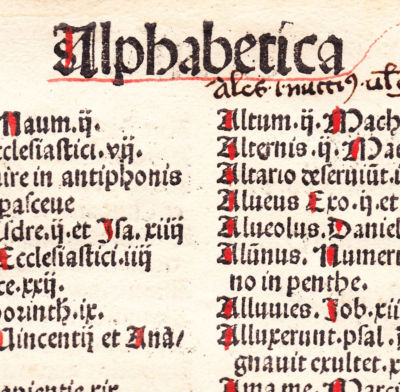 Alphabetica
Naum.ij.
cclesiastici.vij.
uire in antiphonis
pasceue
sdre.ij.et Isa.xiiij
Ecclesiastici.iiij
ce.xxij.
orinth.ix.
Vincentij et Anā/
Altum.ij.Mach
Alternis.ij.Mac
Altario deseruiūt.i
Alueus Exo.ij.et
Alueolus.Daniel
Alūnus.Numeri
no in penthe.
Alluuies.Job.xii
Alluxerunt.psal.
gnauit exultet.